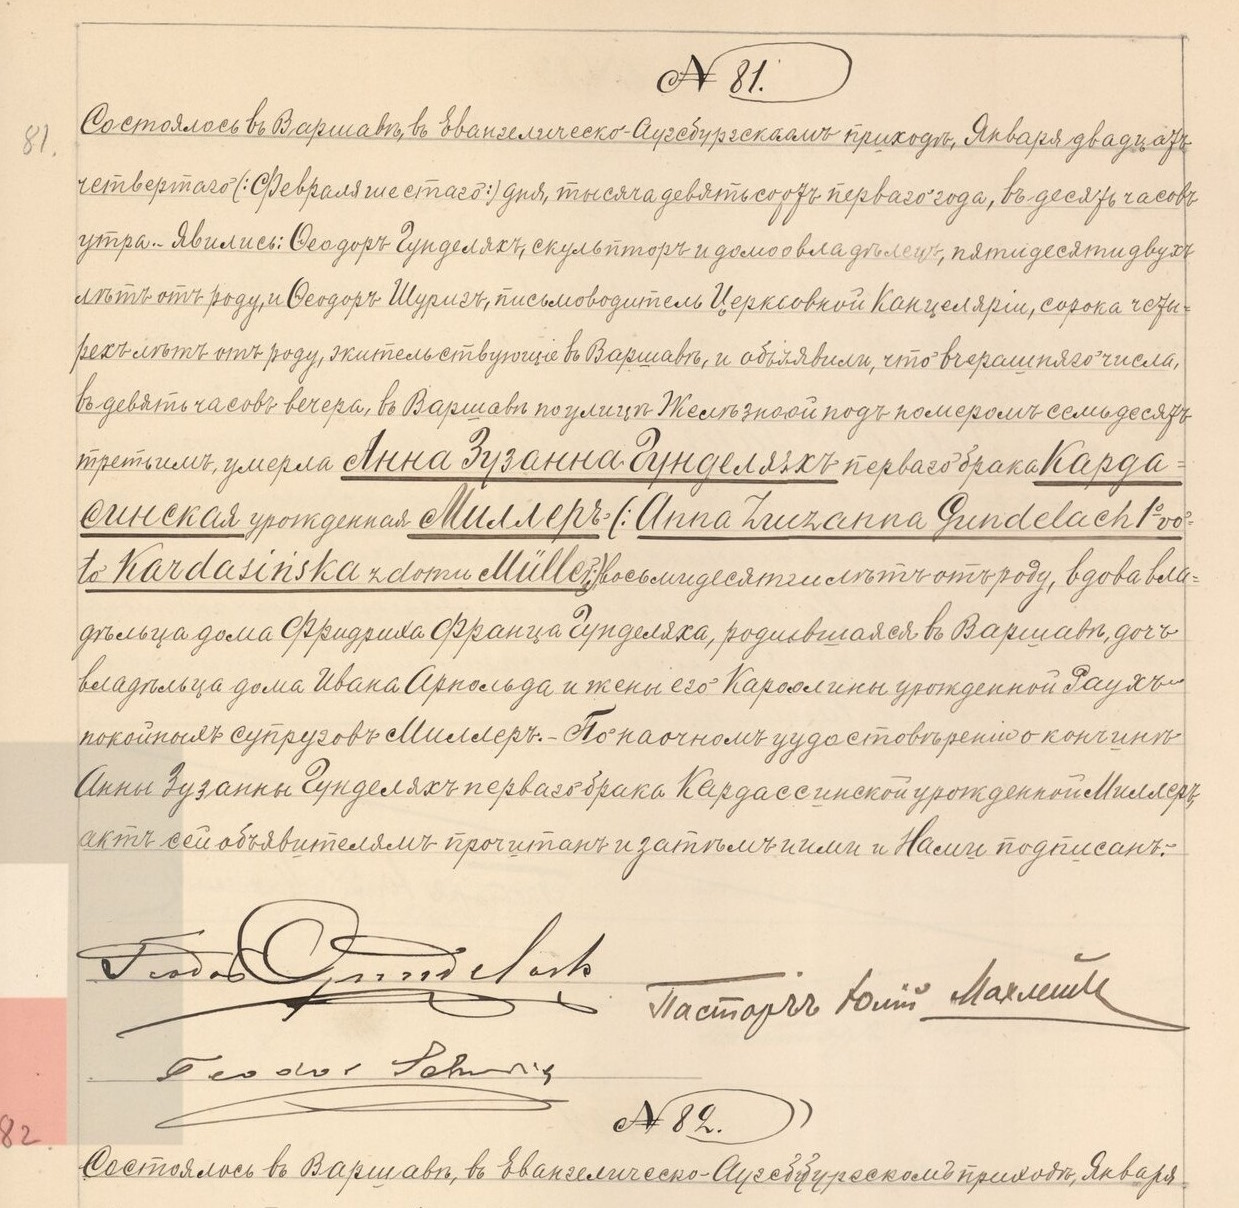 № 81.
81.
Состоялось въ Варшавѣ, въ Евангелическо-Аугсбургскомъ приходѣ, Января двадцать
четвертаго (: Февраля шестаго :) дня, тысяча девятьсотъ перваго года, въ десять часовъ
утра. - Явились: Ѳеодоръ Гунделяхъ, скульпторъ и домовладѣлецъ, пятидесяти двухъ
лѣтъ отъ роду, и Ѳеодоръ Шуригъ, письмоводитель Церковной Канцеляріи, сорока четы-
рехъ лѣтъ отъ роду, жительствующіе въ Варшавѣ, и объявили, что вчерашняго числа,
въ девять часовъ вечера, въ Варшавѣ по улицѣ Желѣзной подъ номеромъ семьдесятъ
третьимъ, умерла Анна Зузанна Гунделяхъ перваго брака Карда=
синская урожденная Миллеръ (: Anna Zuzanna Gundelach 1º vo=
to Kardasińska z domu Müller :) восьмидесяти лѣтъ отъ роду, вдова вла=
дѣльца дома Фридриха Франца Гунделяха, родившаяся въ Варшавѣ, дочь
владѣльца дома Ивана Арнольда и жены его Каролины урожденной Раухъ
покойныхъ супруговъ Миллеръ. - По наочномъ удостовѣреніи о кончинѣ
Анны Зузанны Гунделяхъ перваго брака Кардассинской урожденной Миллеръ,
актъ сей объявителямъ прочитанъ и затѣмъ ими и Нами подписанъ.-
Teodor Gundelach
Пасторъ Юлій Махлейдъ
Teodor Schurig
№ 82.
82
Состоялось въ Варшавѣ, въ Евангелическо-Аугсбургскомъ приходѣ, Января